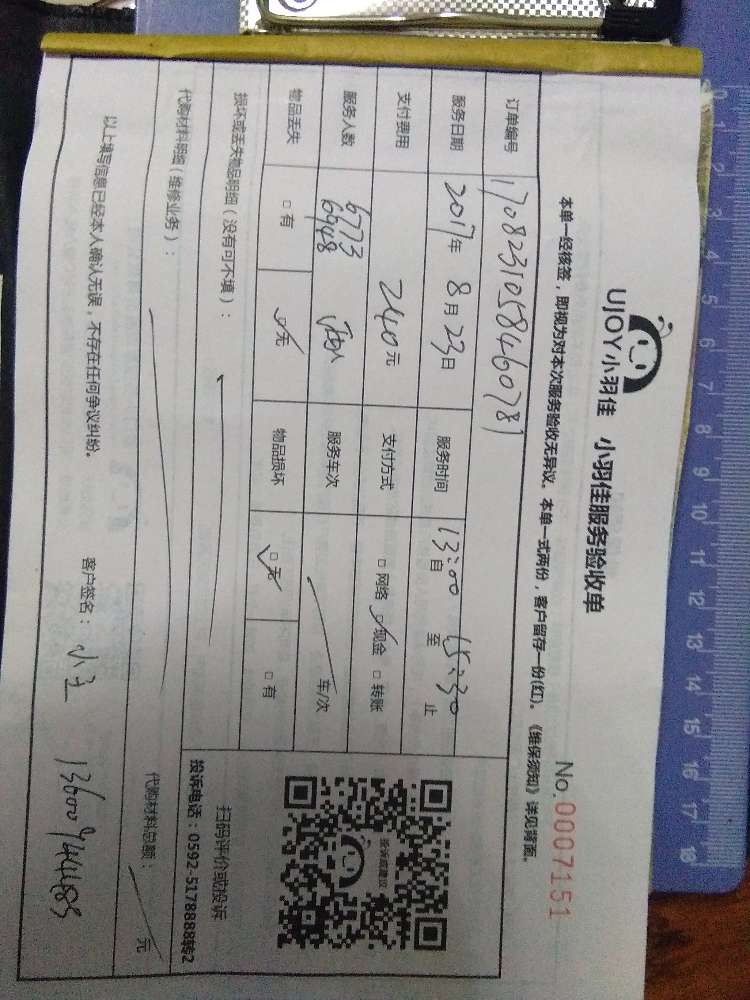 UJOY小羽佳 小羽佳服务验收单
No.0007151
本单一经核签，即视为对本次服务验收无异议。本单一式两份，客户留存一份(红)。《维保须知》详见背面。
订单编号 170823105846078
服务日期 2017年 8月 23日 服务时间 13:00自 至 15:30止
支付费用 240元 支付方式 □网络 □现金 □转账
服务人数 6773 6948 两人 服务车次 车/次
物品丢失 □有 □无 物品损坏 □无 □有
损坏或丢失物品明细（没有可不填）：
服务或建议
扫码评价或投诉
投诉电话：0592-5178888转2
代购材料明细（维修业务）： 代购材料总额： 元
以上填写信息已经本人确认无误，不存在任何争议纠纷。 客户签名：
0 1 2 3 4 5 6 7 8 9 10 11 12 13 14 15 16 17 18